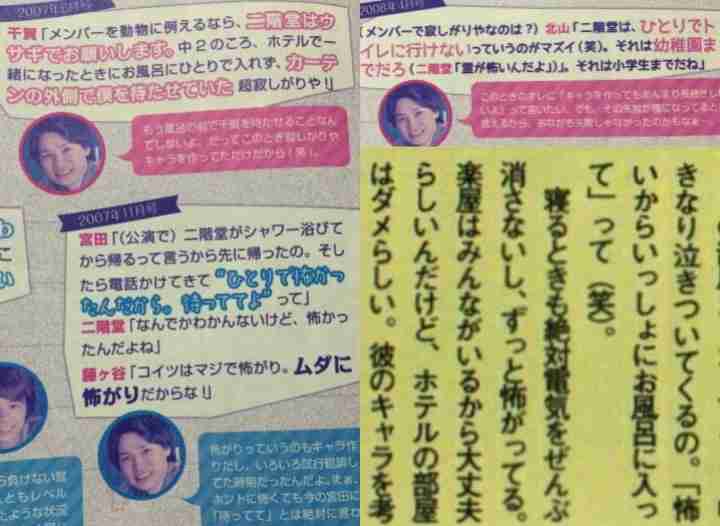 千賀「メンバーを動物に例えるなら、二階堂はウ
サギでお願いします。中2のころ、ホテルで一
緒になったときにお風呂にひとりで入れず、カーテ
ンの外側で僕を待たせていた 超寂しがりや!」
もう風呂の前で千賀を待たせることなん
てしないよ。だってこのとき寂しがりや
キャラを作ってただけだから(笑)。
2007年11月号
宮田「(公演で)二階堂がシャワー浴びて
から帰るって言うから先に帰ったの。そし
たら電話かけてきて“ひとりで怖かっ
たんだから。待っててよ”って」
二階堂「なんでかわかんないけど、怖かっ
たんだよね」
藤ヶ谷「コイツはマジで怖がり。ムダに
怖がりだからな!」
怖がりっていうのもキャラ作
りだし、いろいろ試行錯誤し
てた時期だったんだよ。まぁ、
ホントに怖くても今の宮田に
「待ってて」とは絶対に言わ
負けない
ともレベル
たような状況
2008年
メンバーで寂しがりやなのは?）北山「二階堂は、ひとりでト
イレに行けないっていうのがマズイ(笑)。それは幼稚園ま
でだろ(二階堂「霊が怖いんだよ」)」。それは小学生までだね」
このときのオレに「キャラを作っても
いよ」って言いたい。でも、その失敗が糧になってると
思えるから、あながち失敗じゃなかったのかもなぁ〜。
きなり泣きついてくるの。「怖
いからいっしょにお風呂に入っ
て」って(笑)。
寝るときも絶対電気をぜんぶ
消さないし、ずっと怖がってる。
楽屋はみんながいるから大丈夫
らしいんだけど、ホテルの部屋
はダメらしい。彼のキャラを考